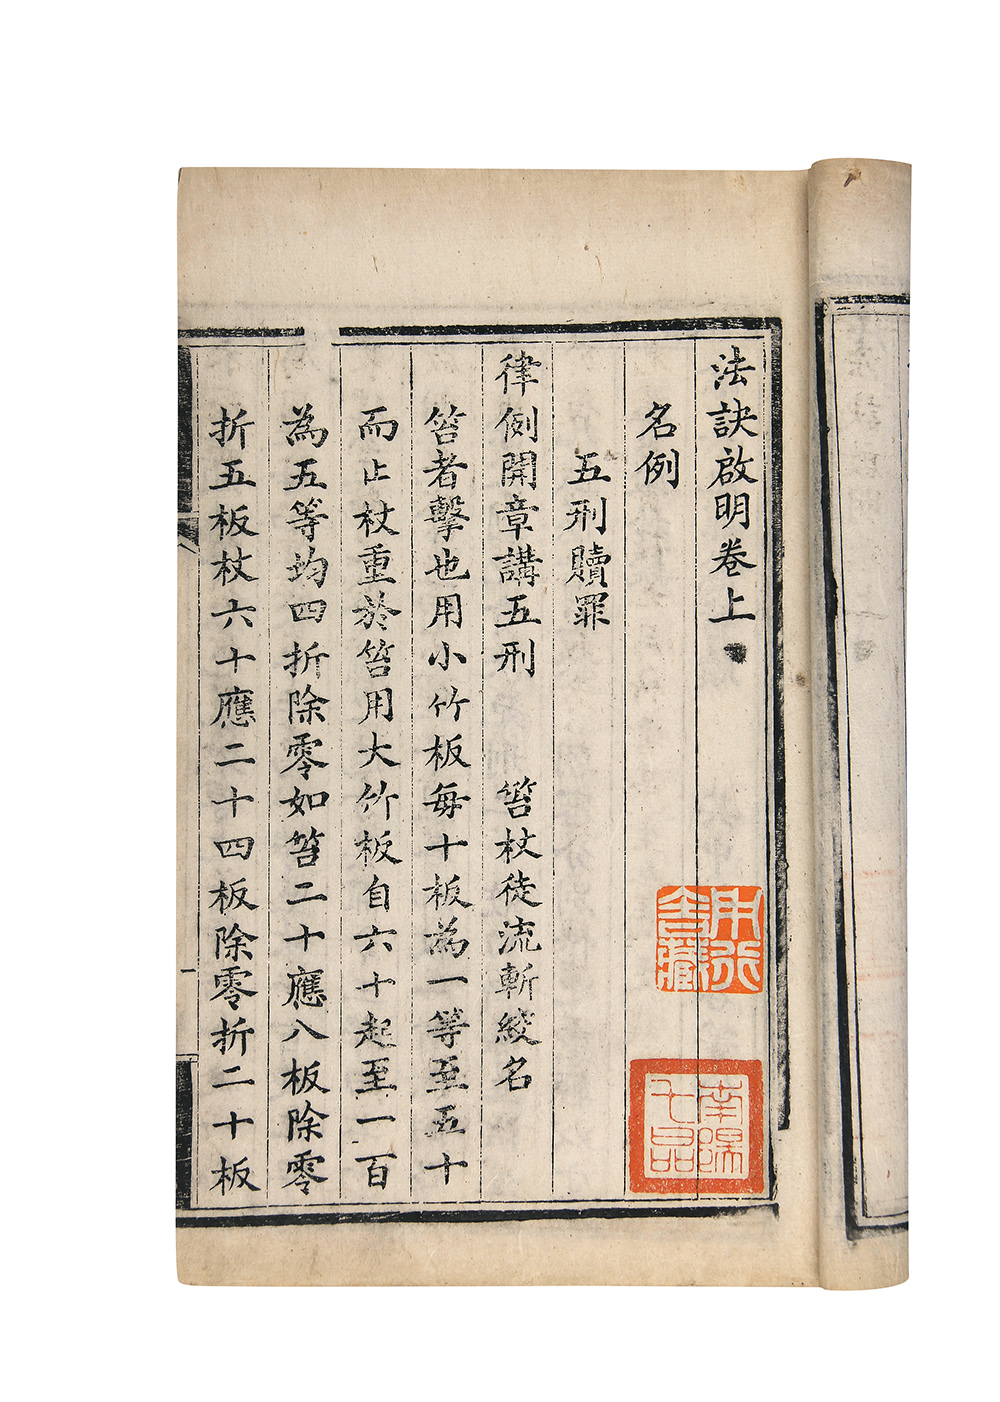 法訣啟明卷上
名例
五刑贖罪
律例開章講五刑　笞杖徒流斬絞名
笞者擊也用小竹板每十板為一等至五十
而止杖重於笞用大竹板自六十起至一百
為五等均四折除零如笞二十應八板除零
折五板杖六十應二十四板除零折二十板